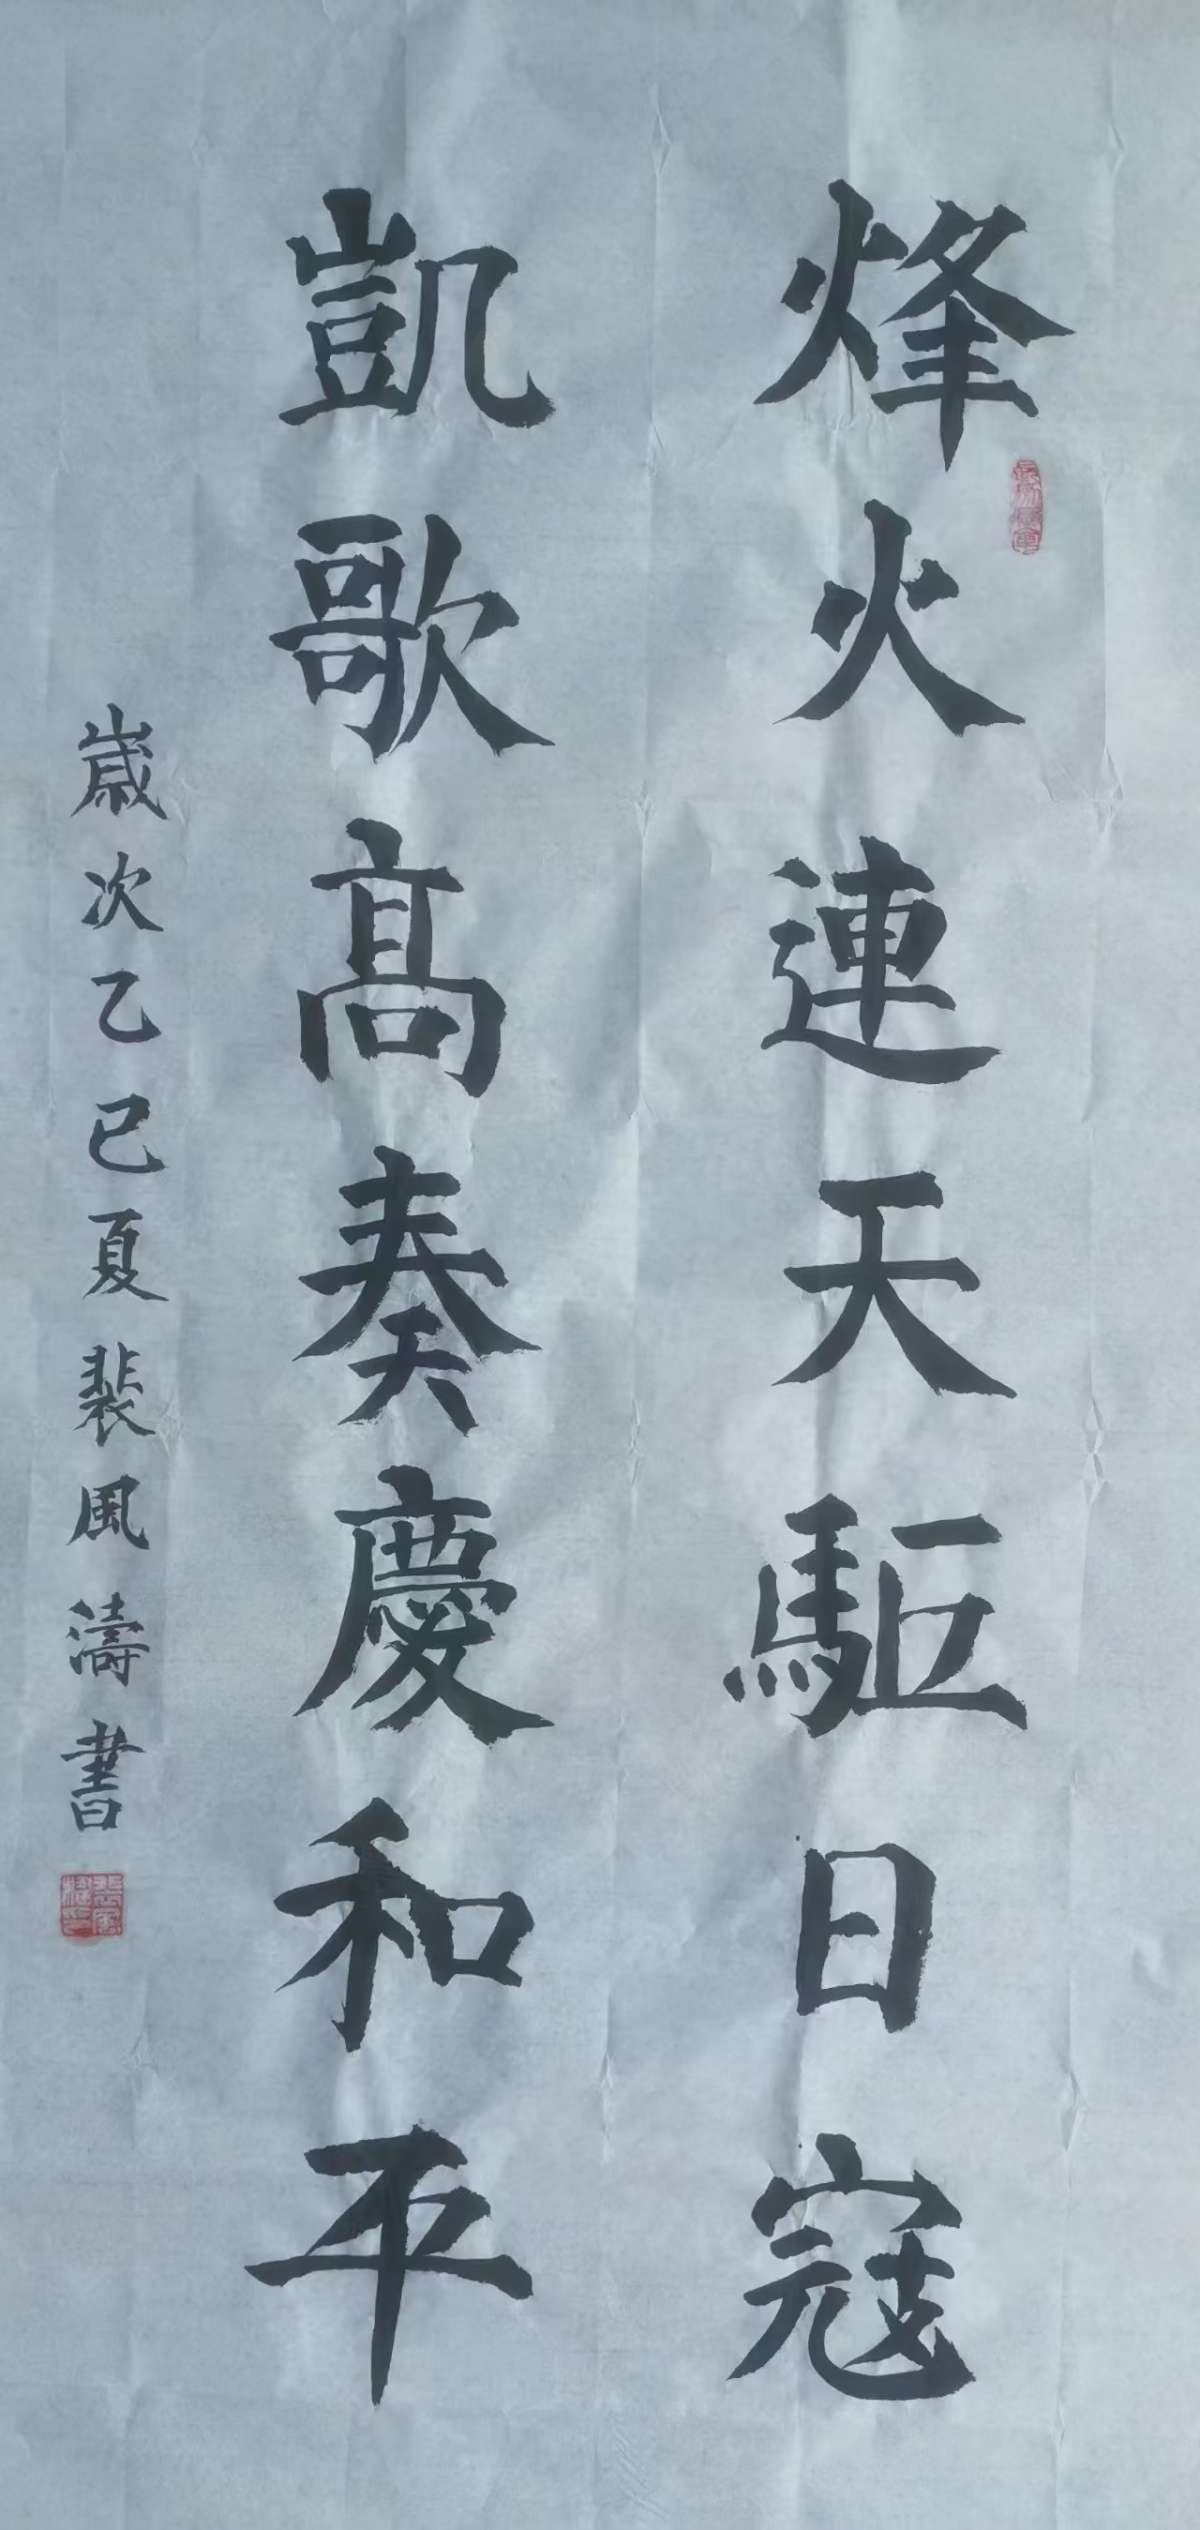 烽火連天驅日寇
凱歌髙奏慶和平
歲次乙巳夏裴風濤書